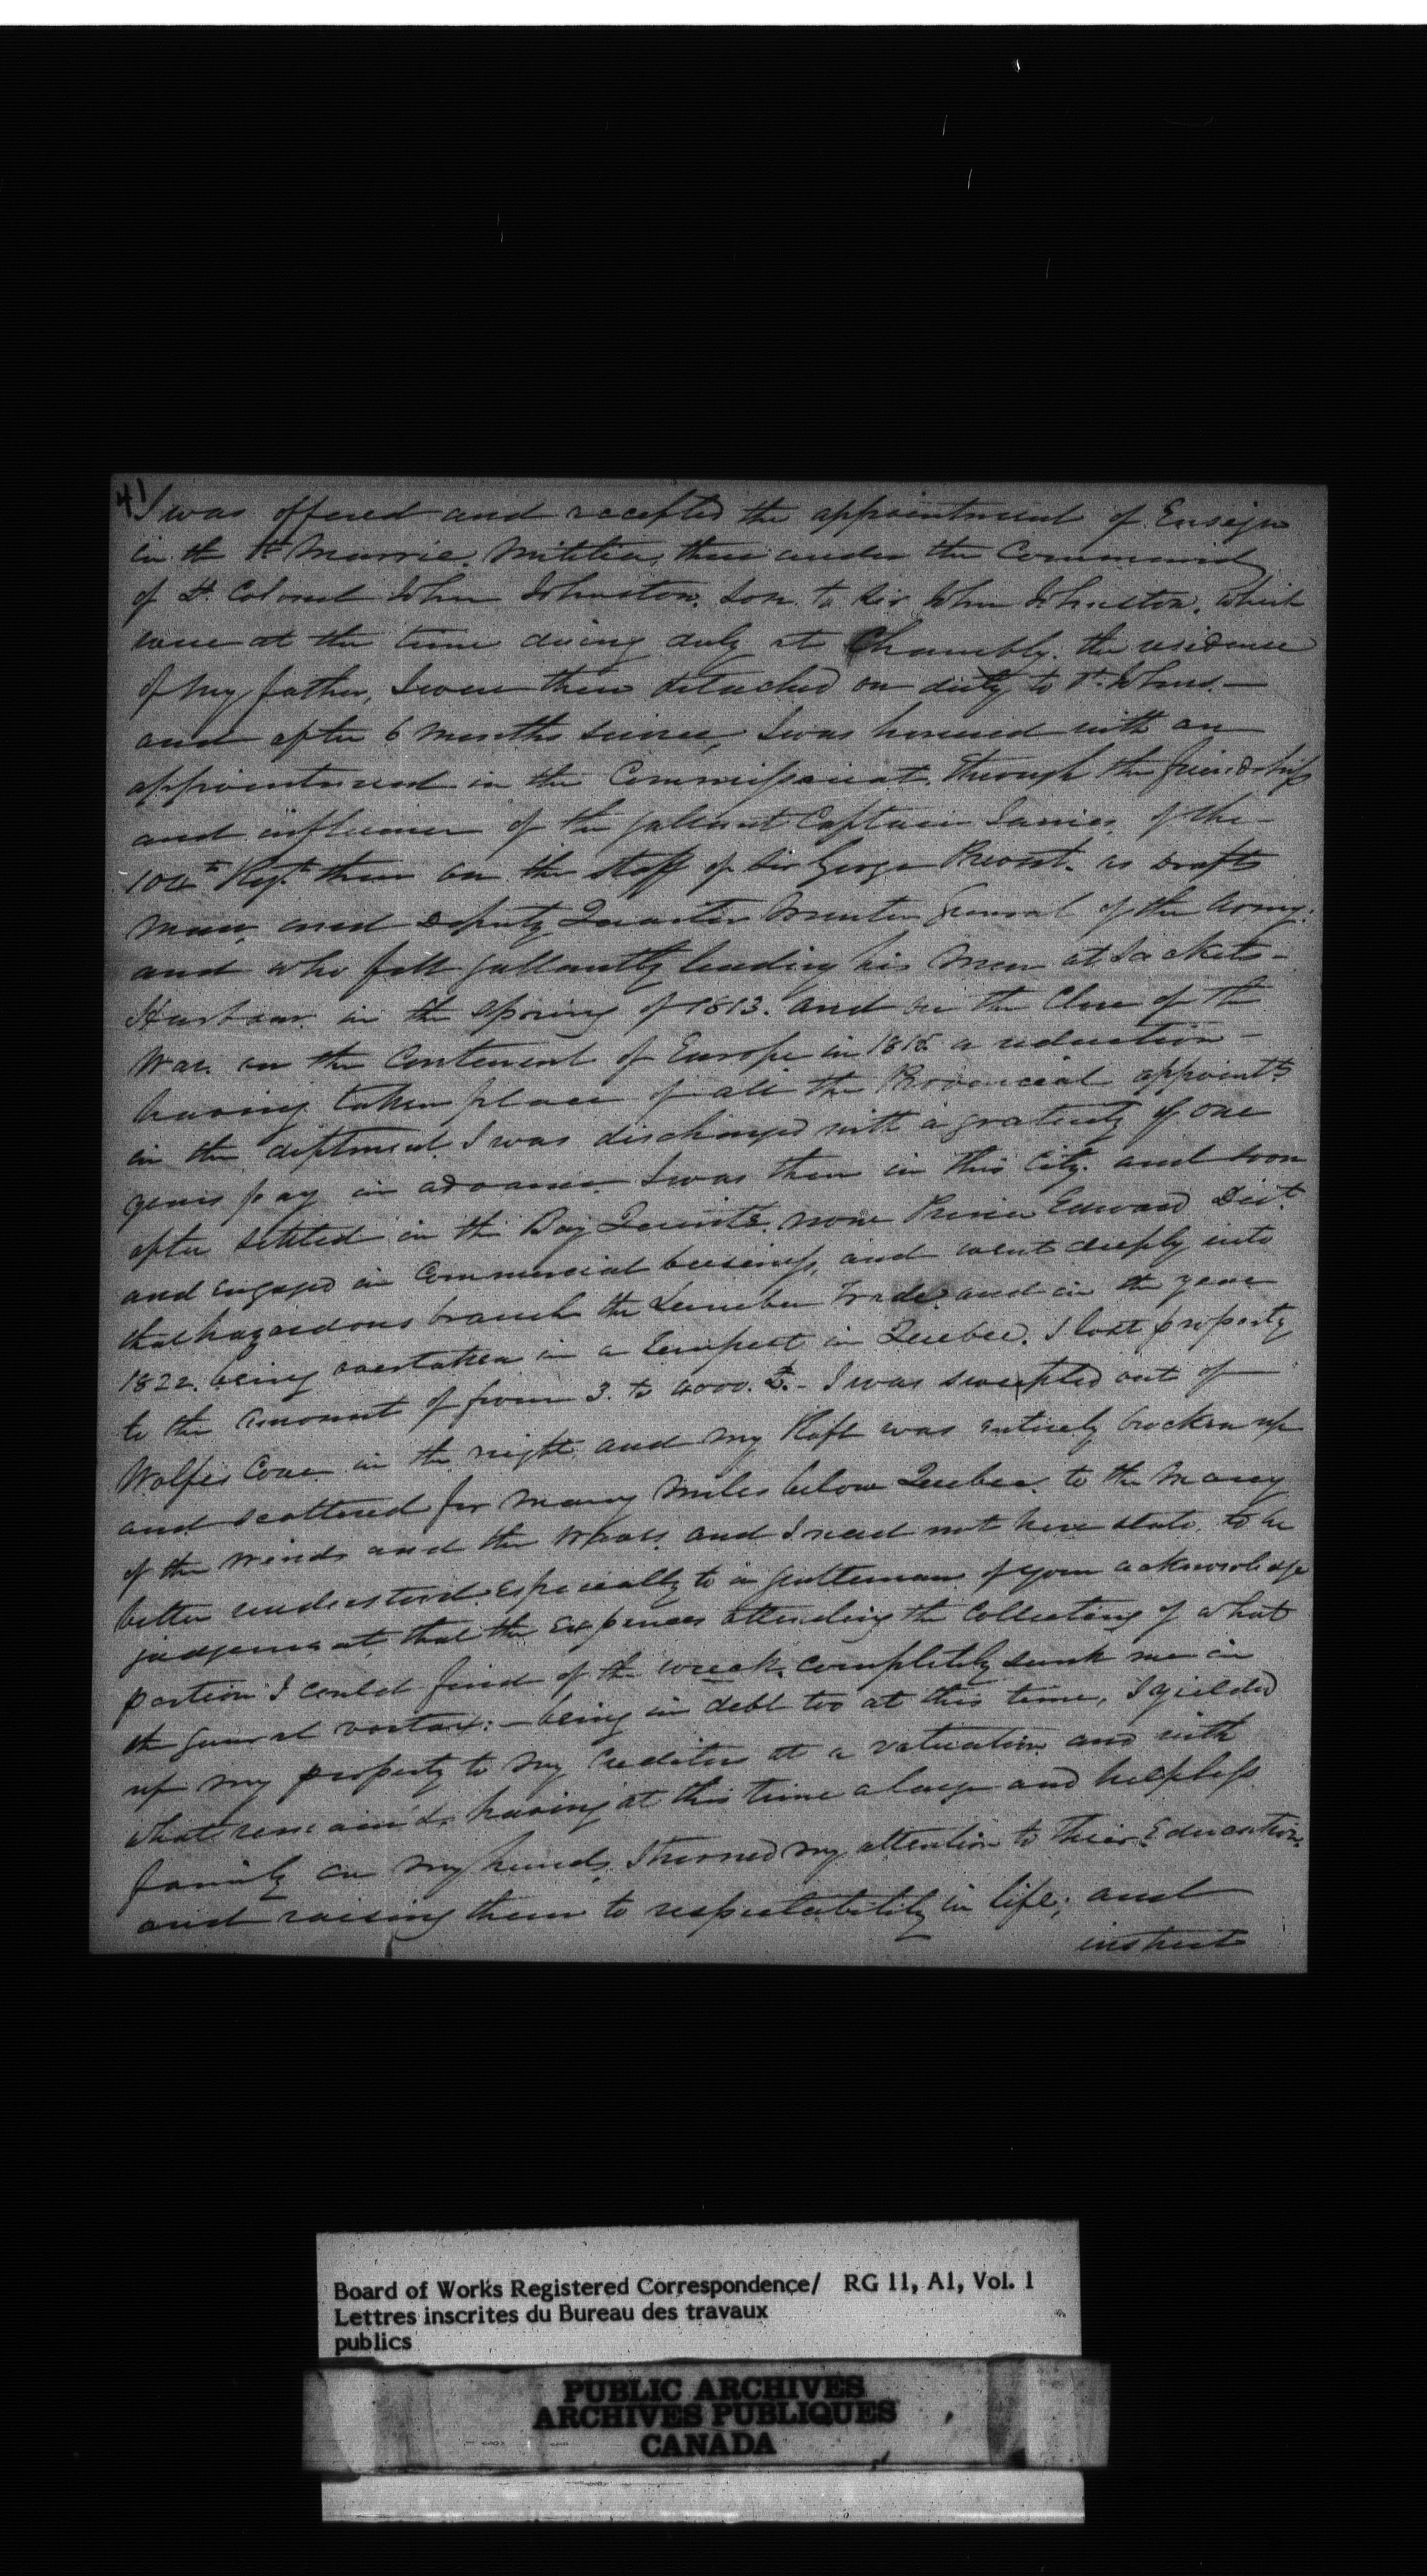 4) I was offered and accepted the appointment of Ensign
in the St Marrie. Militia, then under the Command
of Lt. Colonel John Johnston. Son to Sir John Johnston. which
were at the time doing duty at Chambly. the residence
of my father, I were then detached on duty to St. Johns.—
and after 6 months service, I was honored with an
appointment in the Commissariat. through the friendship
and influence of the gallant Captain of the—
104th Regt. then on the Staff of Sir George Prevost. as Drafts
man, and Deputy Quarter Master General of the Army:
and who fell gallantly leading his men at Sackets-
Harbour in the spring of 1813. and on the Close of the
War. on the Continent of Europe in 1815. a reduction—
having taken place of all the Provincial appointts
in the deptment. I was discharged with a gratuity of one
years pay in advance. I was then in this City. and soon
after settled in the Bay Quinte. now Prince Edward Dist.
and engaged in Commercial business, and went deeply into
that hazardous branch the Lumber Trade. and in the year
1822. being overtaken in a tempest in Quebec. I lost property
to the amount of from 3. to 4000. £.- I was swepted out of
Wolfes Cove in the night and my Raft was entirely brocken up
and scattered for many miles below Quebec. to the marcy
of the winds and the waves. and I need not here state, to be
better understood. especially to a gentleman of your acknowledge
judgement, that the expences attending the Collecting of what
portion I could find of the wreck. completely sunk me in
the general vortax:- being in debt too at this time, I yielded
up my property to my Creditors at a valuation and with
what remain'd, having at this time a large and helpless
family on my hands, I turned my attention to their Education.
and raising them to respectability in life; and
instruct
Board of Works Registered Correspondence/ RG 11, A1, Vol. 1
Lettres inscrites du Bureau des travaux
publics
PUBLIC ARCHIVES
ARCHIVES PUBLIQUES
CANADA